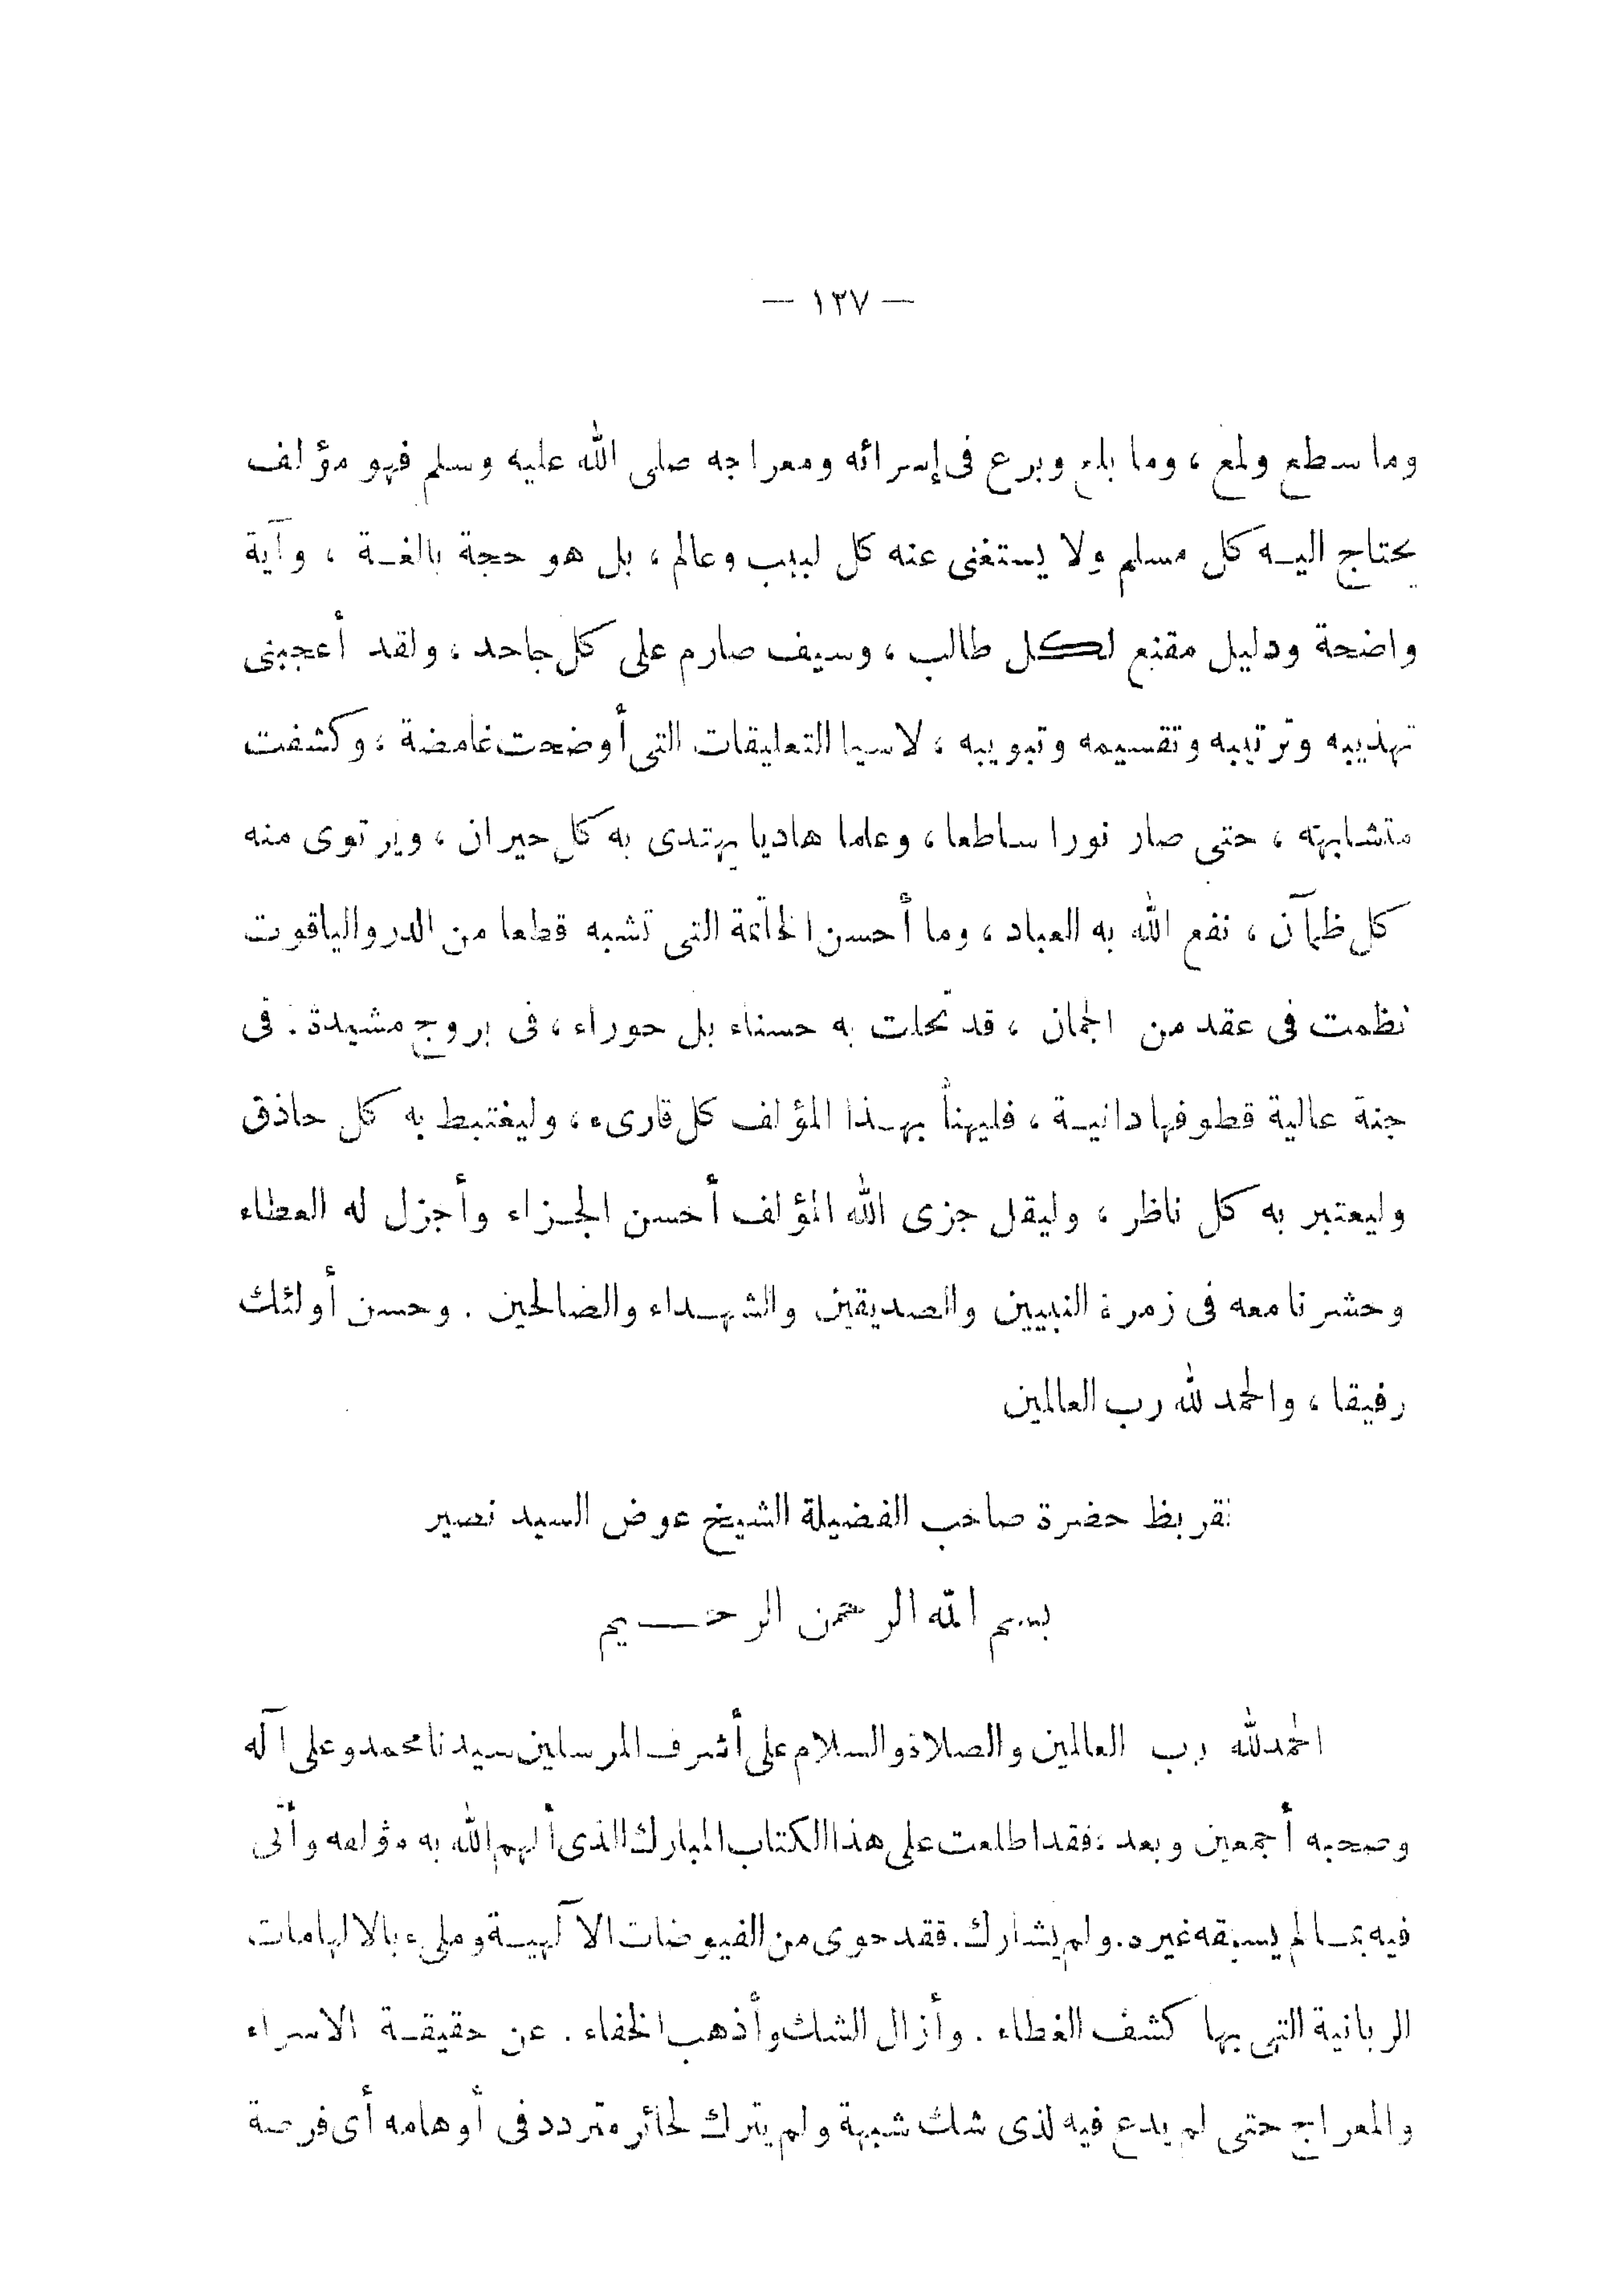 — ١٣٧ —
وما سطع ولمع ، وما بلع وبرع فى إسرائه ومعراجه صلى الله عليه وسلم فهو مؤلف
يحتاج اليه كل مسلم ولا يستغنى عنه كل لبيب وعالم ، بل هو حجة بالغة ، وآية
واضحة ودليل مقنع لكل طالب ، وسيف صارم على كل جاحد ، ولقد أعجبنى
تهذيبه وترتيبه وتقسيمه وتبويبه ، لاسيما التعليقات التى أوضحت غامضة ، وكشفت
متشابهته ، حتى صار نورا ساطعا ، وعلما هاديا يهتدى به كل حيران ، ويرتوى منه
كل ظمآن ، نفع الله به العباد ، وما أحسن الخاتمة التى تشبه قطعا من الدر والياقوت
نظمت فى عقد من الجمان ، قد تحلت به حسناء بل حوراء ، فى بروج مشيدة . فى
جنة عالية قطوفها دانية ، فليهنأ بهذا المؤلف كل قارىء ، وليغتبط به كل حاذق
وليعتبر به كل ناظر ، وليقل جزى الله المؤلف أحسن الجزاء وأجزل له العطاء
وحشرنا معه فى زمرة النبيين والصديقين والشهداء والصالحين . وحسن أولئك
رفيقا ، والحمد لله رب العالمين
تقريظ حضرة صاحب الفضيلة الشيخ عوض السيد نصير
بسم الله الرحمن الرحيم
الحمد لله رب العالمين والصلاة والسلام على أشرف المرسلين سيدنا محمد وعلى آله
وصحبه أجمعين وبعد : فقد اطلعت على هذا الكتاب المبارك الذى ألهم الله به مؤلفه وأتى
فيه بما لم يسبقه غيره . ولم يشارك . فقد حوى من الفيوضات الآلهية ومليء بالالهامات
الربانية التى بها كشف الغطاء . وأزال الشك وأذهب الخفاء . عن حقيقة الاسراء
والمعراج حتى لم يدع فيه لذى شك شبهة ولم يترك لحائر متردد فى أوهامه أى فرصة